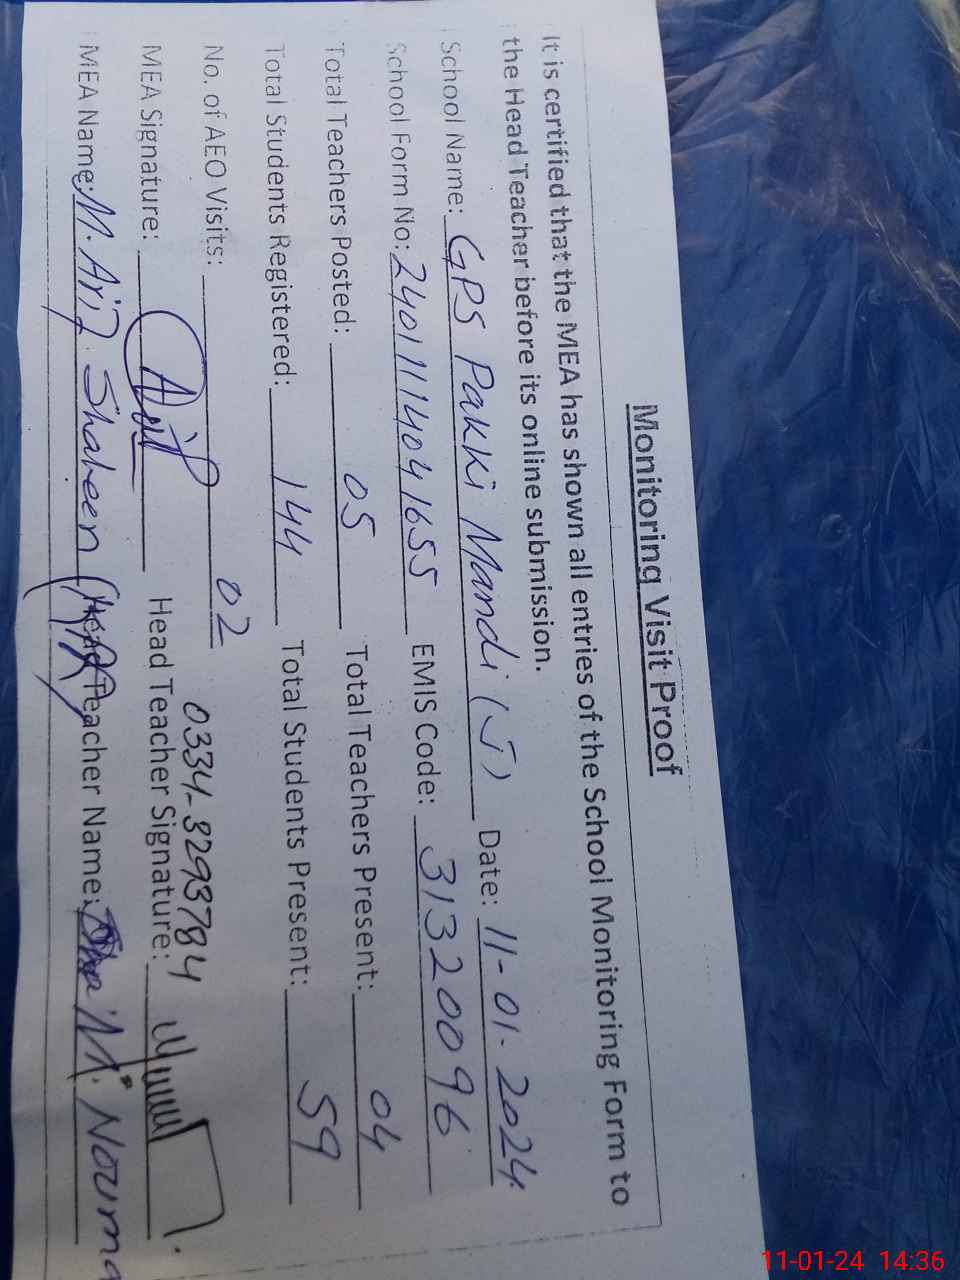 Monitoring Visit Proof
It is certified that the MEA has shown all entries of the School Monitoring Form to
the Head Teacher before its online submission.
School Name: GPS Pakki Mandi (J) Date: 11-01-2024
School Form No: 24011114041655 EMIS Code: 31320096
Total Teachers Posted: 05 Total Teachers Present: 04
Total Students Registered: 144 Total Students Present: 59
No. of AEO Visits: 02
0334-3293784
MEA Signature: Head Teacher Signature:
MEA Name: M. Arif Shaheen Head Teacher Name: M. Nouma
11-01-24 14:36